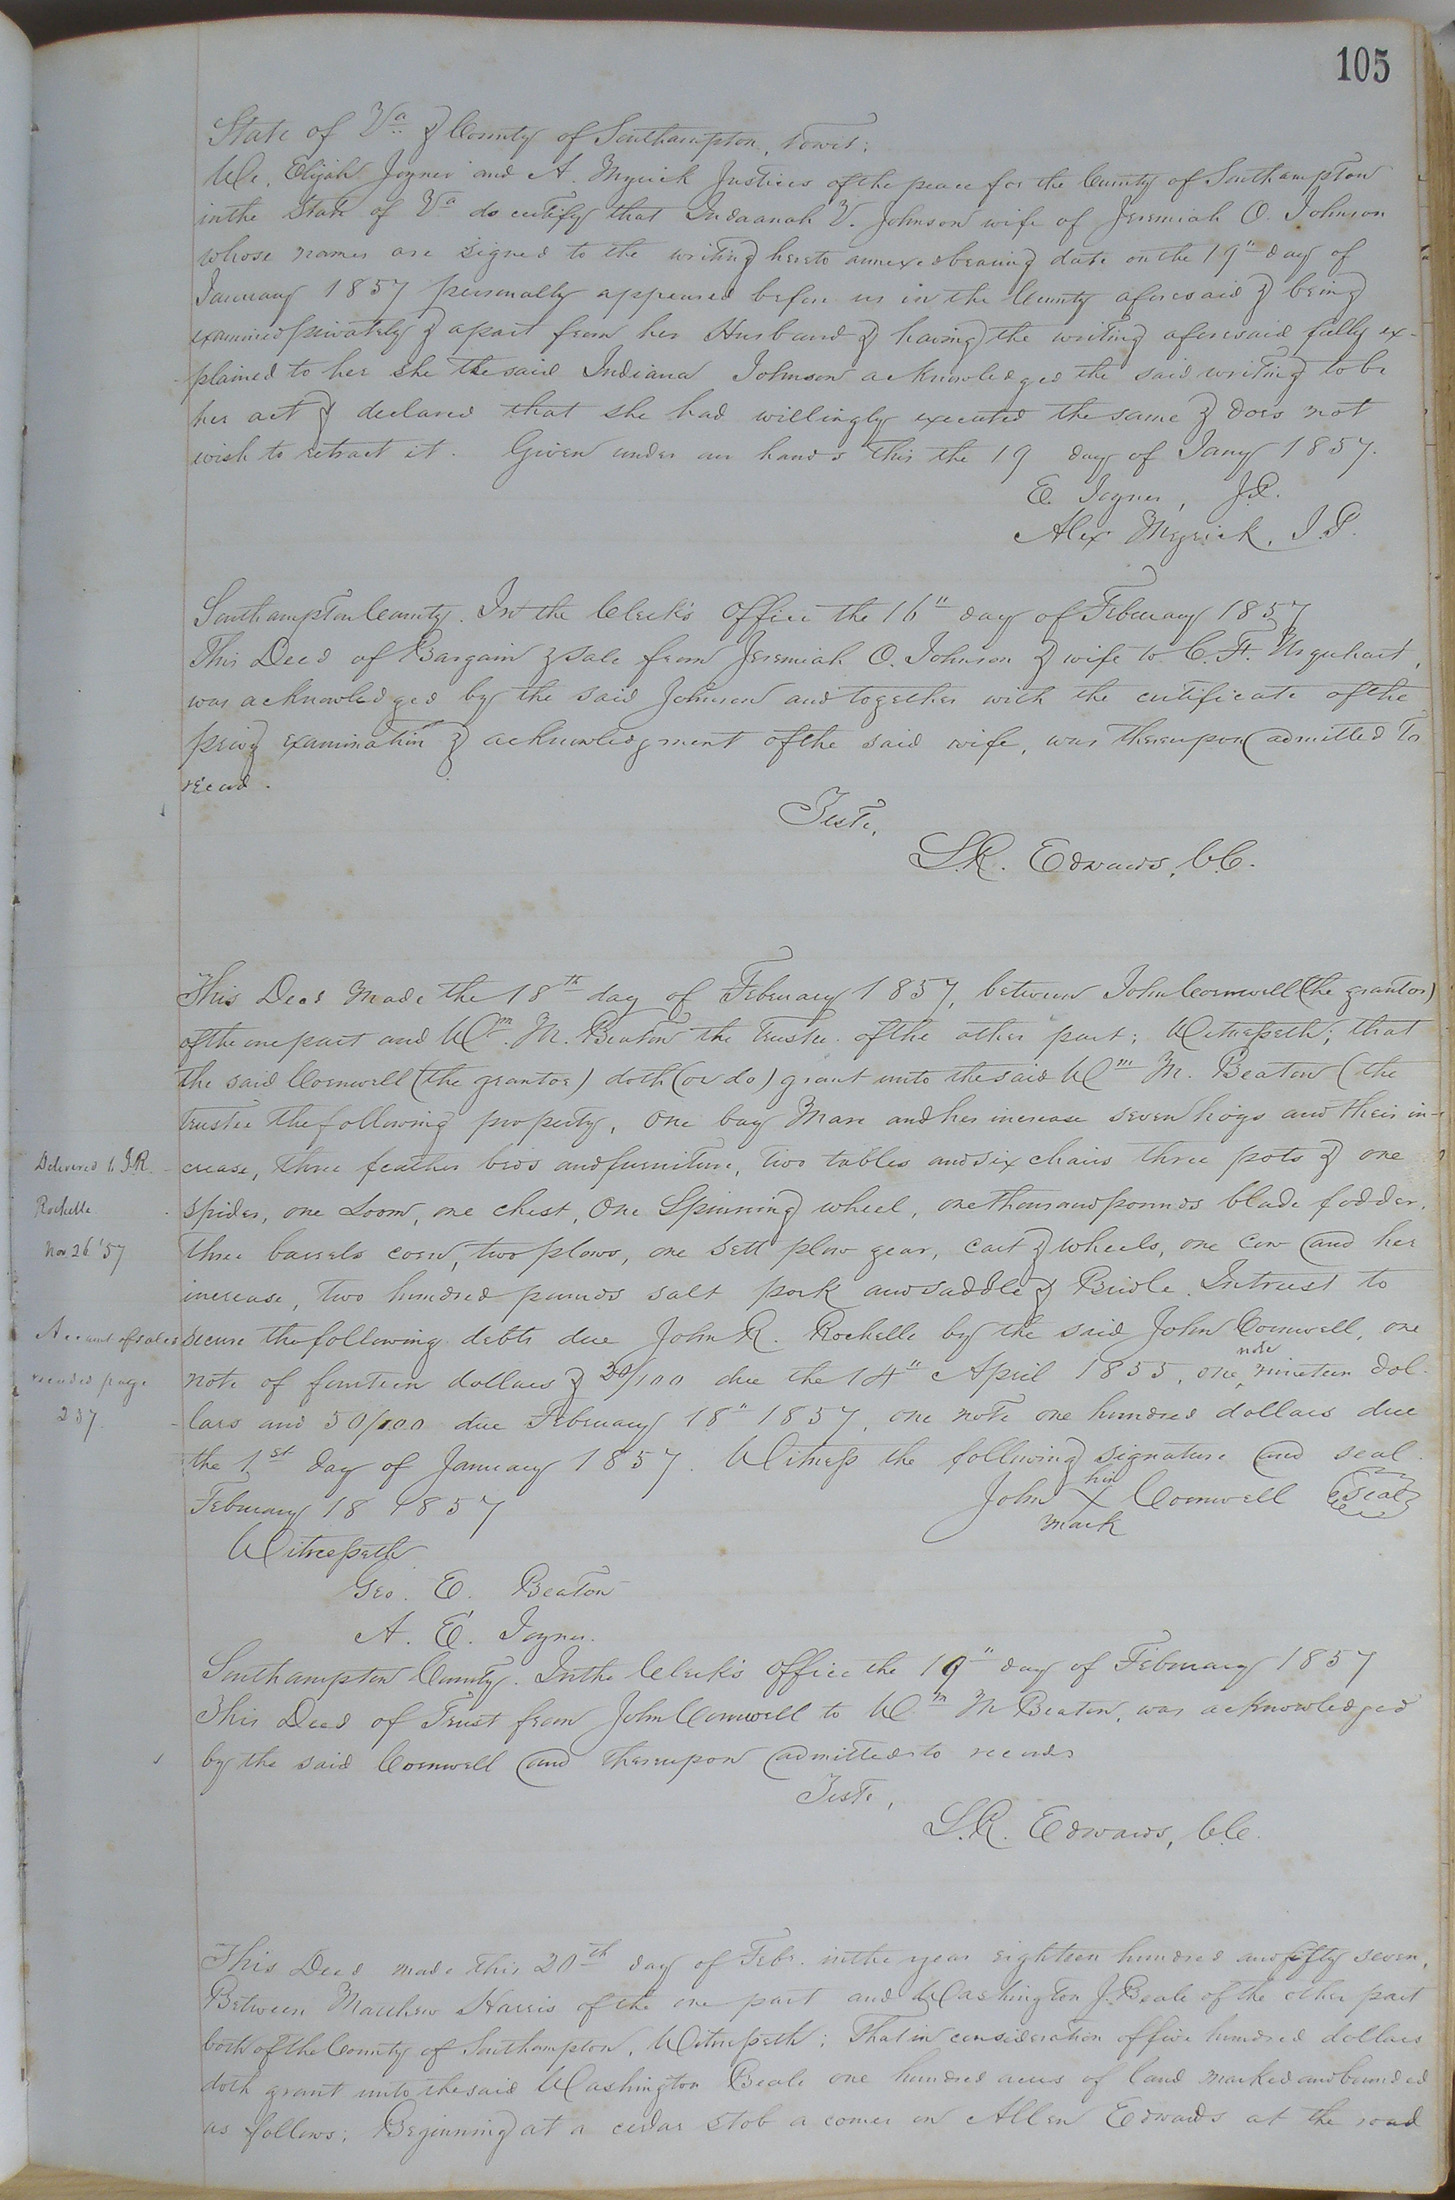 105
State of Va & County of Southampton, towit:
We, Elijah Joyner and A. Myrick Justices of the peace for the County of Southampton
in the State of Va do certify that Indaanah V. Johnson wife of Jeremiah O. Johnson
whose names are signed to the writing hereto annexed bearing date on the 19" day of
January 1857 personally appeared before us in the County aforesaid & being
examined privately & apart from her Husband & having the writing aforesaid fully ex-
plained to her she the said Indiana Johnson acknowledged the said writing to be
her act & declared that she had willingly executed the same & does not
wish to retract it. Given under our hands this the 19 day of Jany 1857.
E. Joyner, J.P.
Alex Myrick, J.P.
Southampton County. In the Clerk's Office the 16" day of February 1857
This Deed of Bargain & Sale from Jeremiah O. Johnson & wife to C. F. Urquhart,
was acknowledged by the said Johnson and together with the certificate of the
privy examination & acknowledgment of the said wife, was thereupon admitted to
record.
Teste,
L.R. Edwards, C.C.
This Deed made the 18th day of February 1857, between John Cornwell (the grantor)
of the one part and Wm. M. Beaton the trustee of the other part; Witnesseth; that
the said Cornwell (the grantor) doth (or do) grant unto the said Wm M. Beaton (the
trustee the following property, One bay Mare and her increase seven hogs and their in-
Delivered to J.R.
crease, three feather beds and furniture, two tables and six chairs three pots & one
Rochelle
spider, one Loom, one chest, One Spinning wheel, one thousand pounds blade fodder,
Nov 26 '57
three barrels corn, two plows, one sett plow gear, cart & wheels, one Cow and her
increase, two hundred pounds salt pork and saddle & Bridle. In trust to
Account of sales
secure the following debts due John R. Rochelle by the said John Cornwell, one
recorded page
note of fourteen dollars & 30/100 due the 14" April 1855, one note nineteen dol-
237
lars and 50/100 due February 18" 1857, one note one hundred dollars due
the 1st day of January 1857. Witness the following signature and seal.
February 18 1857
John his X mark Cornwell Seal
Witnesseth
Geo. E. Beaton
A. E. Joyner.
Southampton County. In the Clerk's Office the 19" day of February 1857
This Deed of Trust from John Cornwell to Wm M Beaton, was acknowledged
by the said Cornwell and thereupon admitted to record
Teste,
L.R. Edwards, C.C.
This Deed made this 20th day of Feby. in the year eighteen hundred and fifty seven,
Between Matthew Harris of the one part and Washington J. Beale of the other part
both of the County of Southampton, Witnesseth; That in consideration of five hundred dollars
doth grant unto the said Washington Beale one hundred acres of land marked and bounded
as follows; Beginning at a cedar stob a corner on Allen Edwards at the road